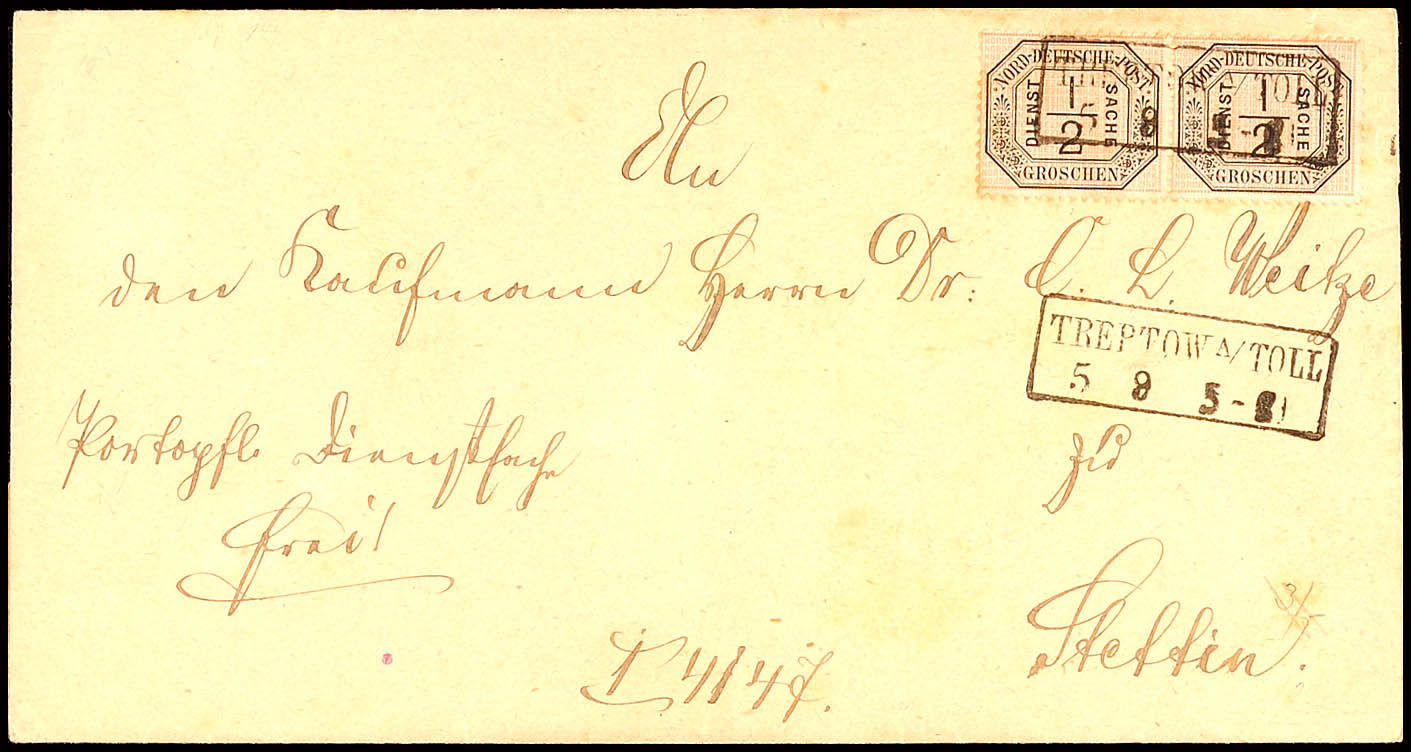 NORD-DEUTSCHE-POST NORD-DEUTSCHE-POST
DIENST 1/2 SACHE DIENST 1/2 SACHE
GROSCHEN GROSCHEN
/TOLL
An
den Kaufmann Herrn Dr. C. L. Weitze
TREPTOW A/TOLL
5 8 5-
Portopfl. Dienstsache
frei!
zu
Stettin.
4147.